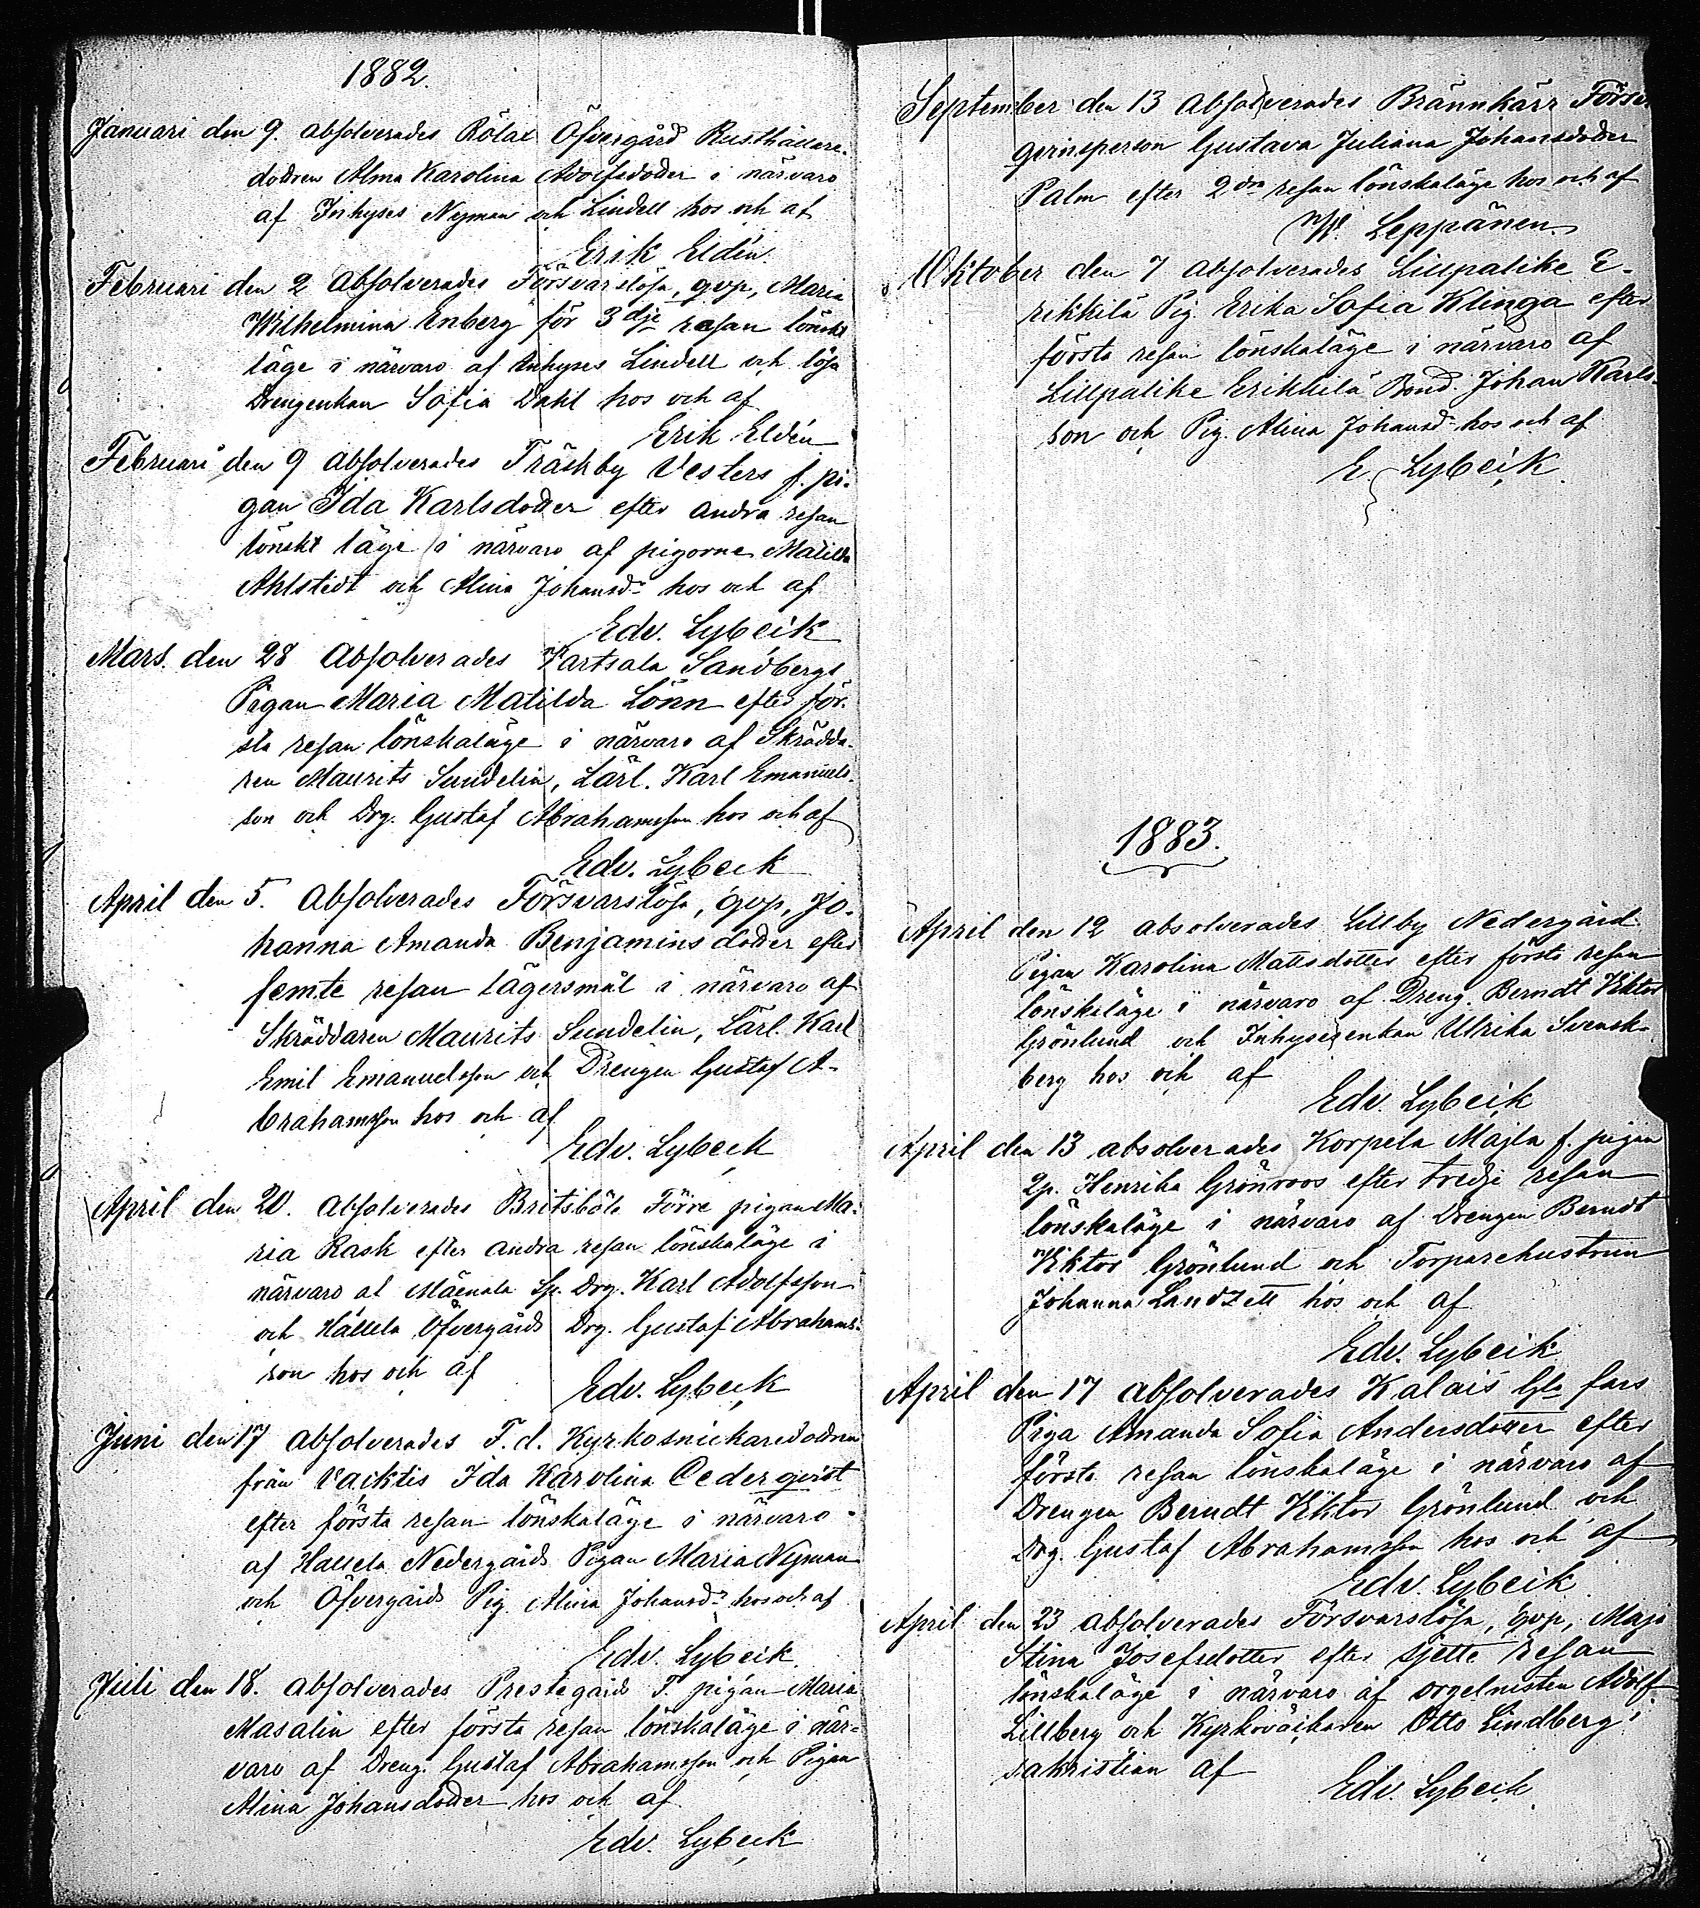 1882.
Januari den 9. absolverades Rölax Öfvergård Rusthållare-
dottren Alma Karolina Adolfsdotter i närvaro
af Inhyses Nyman och Lindell hos och af
Erik Eldén
Februari den 2 absolverades Försvarslösa, qvp, Maria
Wilhelmina Enberg för 3dje resan lönska
läge i närvaro af Inhyses Lindell och lösa
Drengenkan Sofia Dahl hos och af
Erik Eldén
Februari den 9 absolverades Träskby Vesters f. pi-
gan Ida Karlsdotter efter andra resan
lönskt läge i närvaro af pigorne Matilda
Ahlstedt och Alina Johansd:r hos och af
Edv. Lybeck
Mars. den 28 absolverades Kartsala Sandbergs
Pigan Maria Matilda Lönn efter för-
sta resan lönskaläge i närvaro af Skrädda-
ren Maurits Sundelin, Lärl. Karl Emanuels-
son och Drg. Gustaf Abrahamsson hos och af
Edv. Lybeck
April den 5. absolverades Försvarslösa, qvp, Jo-
hanna Amanda Benjaminsdotter efter
femte resan lägersmål i närvaro af
Skräddaren Maurits Sundelin, Lärl. Karl
Emil Emanuelsson och Drengen Gustaf A-
brahamsson hos och af
Edv. Lybeck
April den 20. absolverades Britsböle Förre pigan Ma-
ria Rask efter andra resan lönskaläge i
närvaro af Mäenala Sp. Drg. Karl Adolfsson
och Hällela Öfvergårds Drg. Gustaf Abrahams-
son hos och af
Edv. Lybeck
Juni den 17 absolverades F. d. Kyrkosnickaredottren
från Vaiktis Ida Karolina Cederqvist
efter första resan lönskaläge i närvaro
af Hallela Nedergårds Pigan Maria Nyman
och Öfvergårds Pig. Alina Johansd:r hos och af
Edv. Lybeck.
Juli den 18. absolverades Prestegårds F. pigan Maria
Masalin efter första resan lönskaläge i när-
varo af Dreng. Gustaf Abrahamsson och Pigan
Alina Johansdotter hos och af
Edv. Lybeck
September den 13 absolverades Brännkärr Förse-
gerinsperson Gustava Juliana Johansdotter
Palm efter 2dra resan lönskaläge hos och af
W. Leppänen
Oktober den 7 absolverades Lillpalike E-
rikkilä Pig. Erika Sofia Klinga efter
första resan lönskaläge i närvaro af
Lillpalike Erikkilä Bond. Johan Karls-
son och Pig. Alina Johansd:r hos och af
E. Lybeck.
1883.
April den 12 absolverades Lillby Nedergård
Pigan Karolina Mattsdotter efter första resan
lönskaläge i närvaro af Dreng. Berndt Viktor
Grönlund och Inhysesenkan Ulrika Svensk-
berg hos och af
Edv. Lybeck
April den 13 absolverades Korpela Majla f. pigan
Qp. Henrika Grönroos efter tredje resan
lönskaläge i närvaro af Drengen Berndt
Viktor Grönlund och Torparehustrun
Johanna Landzett hos och af
Edv. Lybeck
April den 17 absolverades Kalais Gla fars
Piga Amanda Sofia Andersdotter efter
första resan lönskaläge i närvaro af
Drengen Berndt Viktor Grönlund och
Drg. Gustaf Abrahamsson hos och af
Edv. Lybeck
April den 23 absolverades Försvarslösa, qvp, Maja
Stina Josefsdotter efter sjette resan
lönskaläge i närvaro af orgelnisten Adolf
Lillberg och Kyrkoväktaren Otto Lindberg i
sakristian af
Edv. Lybeck